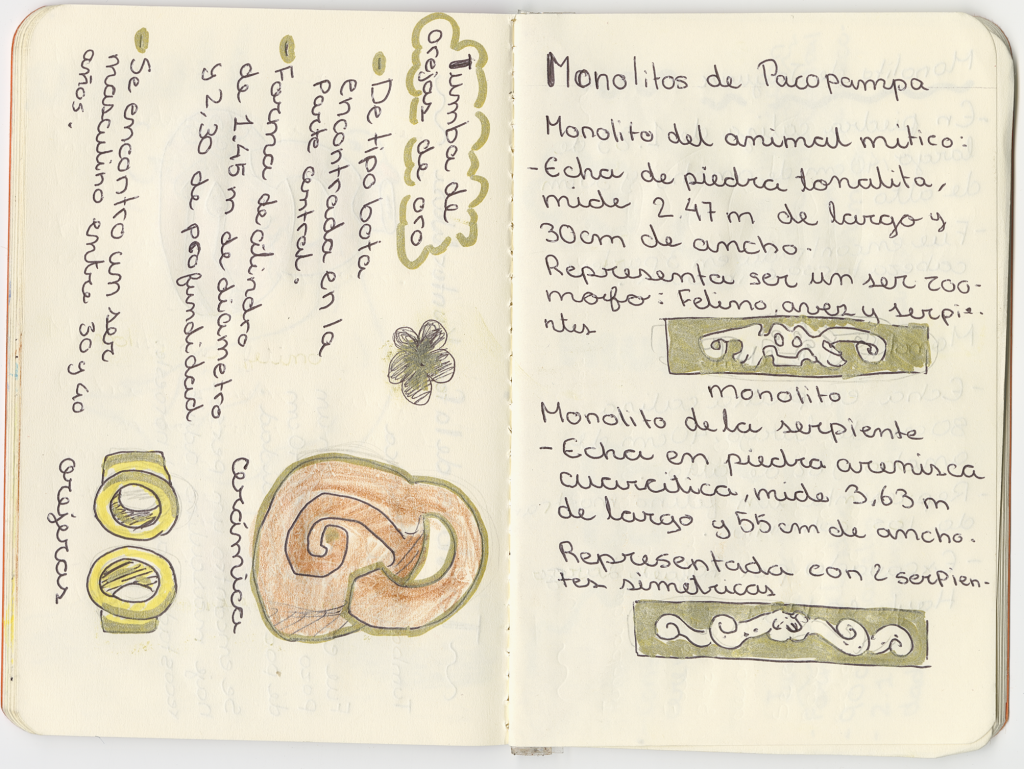 Tumba de
orejas de oro
- De tipo bota
encontrada en la
parte central.
- Forma de cilindro
de 1.45 m de diametro
y 2,30 de profundidad
- Se encontro un ser
masculino entre 30 y 40
años.
cerámica
orejeras
Monolitos de Pacopampa
Monolito del animal mitico:
- Echa de piedra tonalita,
mide 2.47 m de largo y
30cm de ancho.
Representa ser un ser zoo-
morfo: Felino, avez y serpie-
ntes
monolito
Monolito de la serpiente
- Echa en piedra arenisca
cuarcitica, mide 3,63 m
de largo y 55 cm de ancho.
Representada con 2 serpien-
tes simetricas